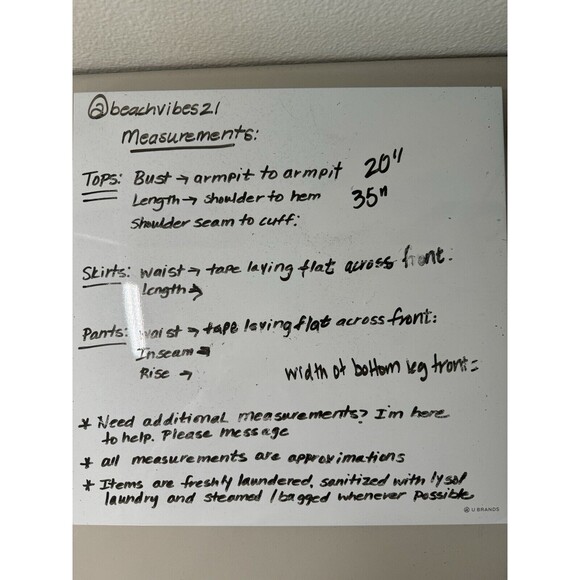 @beachvibes21
Measurements:
Tops: Bust → armpit to armpit 20"
Length → shoulder to hem 35"
Shoulder seam to cuff:
Skirts: waist → tape laying flat across front:
length →
Pants: waist → tape laying flat across front:
Inseam →
Rise → width of bottom leg front:
* Need additional measurements? I'm here
to help. Please message
* all measurements are approximations
* Items are freshly laundered, sanitized with lysol
laundry and steamed / bagged whenever possible
U BRANDS